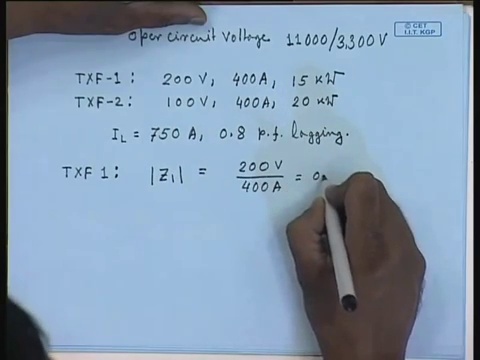 Open circuit Voltage 11000/3,300V
© CET
I.I.T. KGP
TXF-1: 200 V, 400A, 15 kW
TXF-2: 100 V, 400A, 20 kW
IL = 750 A, 0.8 p.f. lagging.
TXF 1: |Z1| = 200 V / 400A = 0.